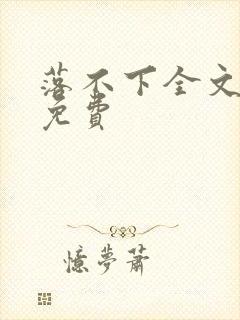 落不下全文
免費
憶夢蕭